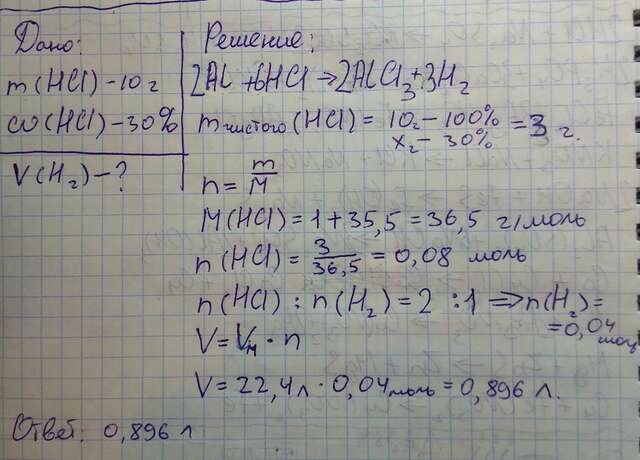 Дано:
m(HCl) - 10 г
ω(HCl) - 30%
V(H₂) - ?
Решение:
2Al + 6HCl → 2AlCl₃ + 3H₂
m чистого (HCl) = 10г - 100% = 3 г.
x г - 30%
n = m/M
M(HCl) = 1 + 35,5 = 36,5 г/моль
n(HCl) = 3/36,5 = 0,08 моль
n(HCl) : n(H₂) = 2 : 1 ⇒ n(H₂) =
= 0,04 моль
V = Vм · n
V = 22,4 л · 0,04 моль = 0,896 л.
Ответ: 0,896 л